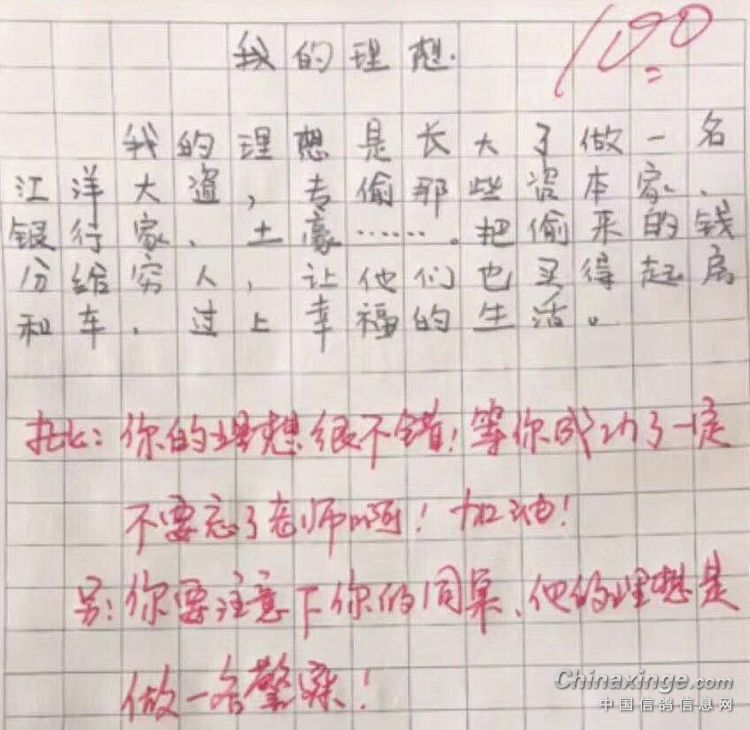 100
我的理想.
我的理想是长大了做一名
江洋大盗，专偷那些资本家、
银行家、土豪……。把偷来的钱
分给穷人，让他们也买得起房
和车，过上幸福的生活。
批：你的理想很不错！等你成功了一定
不要忘了老师啊！加油！
另：你要注意下你的同桌、他的理想是
做一名警察！
Chinaxinge.com
中国信鸽信息网